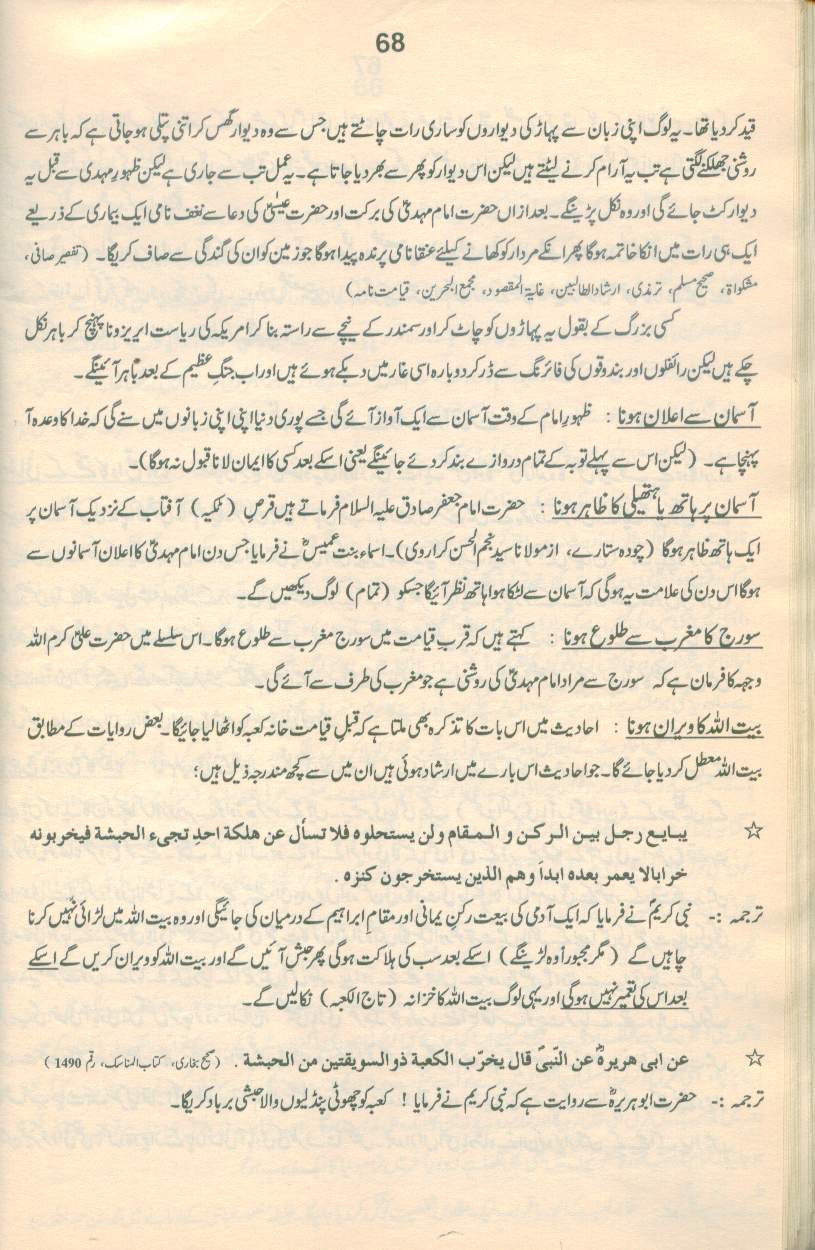 68
قید کردیا تھا۔ یہ لوگ اپنی زبان سے پہاڑ کی دیواروں کو ساری رات چاٹتے ہیں جس سے وہ دیوار گھس کر اتنی پتلی ہوجاتی ہے کہ باہر سے
روشنی جھلکنے لگتی ہے تب یہ آرام کرنے لیٹتے ہیں لیکن اس دیوار کو پھر سے بھر دیا جاتا ہے۔ یہ عمل تب سے جاری ہے لیکن ظہورِ مہدی سے قبل یہ
دیوار کٹ جائے گی اور وہ نکل پڑینگے۔ بعد ازاں حضرت امام مہدیؑ کی برکت اور حضرت عیسیٰؑ کی دعا سے نغف نامی ایک بیماری کے ذریعے
ایک ہی رات میں انکا خاتمہ ہوگا پھر انکے مردار کو کھانے کیلئے عنقا نامی پرندہ پیدا ہوگا جو زمین کو ان کی گندگی سے صاف کریگا۔ (تفسیر صافی،
مشکواۃ، صحیح مسلم، ترمذی، ارشاد الطالبین، غایۃ المقصود، مجمع البحرین، قیامت نامہ)
کسی بزرگ کے بقول یہ پہاڑوں کو چاٹ کر اور سمندر کے نیچے سے راستہ بنا کر امریکہ کی ریاست ایریزونا پہنچ کر باہر نکل
چکے ہیں لیکن رائفلوں اور بندوقوں کی فائرنگ سے ڈر کر دوبارہ اسی غار میں دبکے ہوئے ہیں اور اب جنگِ عظیم کے بعد باہر آئینگے۔
آسمان سے اعلان ہونا : ظہورِ امام کے وقت آسمان سے ایک آواز آئے گی جسے پوری دنیا اپنی اپنی زبانوں میں سنے گی کہ خدا کا وعدہ آ
پہنچا ہے۔ (لیکن اس سے پہلے توبہ کے تمام دروازے بند کردئے جائینگے یعنی اسکے بعد کسی کا ایمان لانا قبول نہ ہوگا)۔
آسمان پر ہاتھ یا ہتھیلی کا ظاہر ہونا : حضرت امام جعفر صادق علیہ السلام فرماتے ہیں قرصِ (ٹکیہ) آفتاب کے نزدیک آسمان پر
ایک ہاتھ ظاہر ہوگا (چودہ ستارے، از مولانا سید نجم الحسن کراروی)۔ اسماء بنت عمیسؓ نے فرمایا جس دن امام مہدیؑ کا اعلان آسمانوں سے
ہوگا اس دن کی علامت یہ ہوگی کہ آسمان سے لٹکا ہوا ہاتھ نظر آئیگا جسکو (تمام) لوگ دیکھیں گے۔
سورج کا مغرب سے طلوع ہونا : کہتے ہیں کہ قربِ قیامت میں سورج مغرب سے طلوع ہوگا۔ اس سلسلے میں حضرت علیؑ کرم اللہ
وجہہ کا فرمان ہے کہ سورج سے مراد امام مہدیؑ کی روشنی ہے جو مغرب کی طرف سے آئے گی۔
بیت اللہ کا ویران ہونا : احادیث میں اس بات کا تذکرہ بھی ملتا ہے کہ قبلِ قیامت خانہ کعبہ کو اٹھالیا جائیگا۔ بعض روایات کے مطابق
بیت اللہ معطل کردیا جائے گا۔ جو احادیث اس بارے میں ارشاد ہوئی ہیں ان میں سے کچھ مندرجہ ذیل ہیں؛
☆ یبایع رجل بین الرکن و المقام ولن یستحلوہ فلا تسأل عن ھلکة احدِ تجیء الحبشة فیخربونه
خرابالا یعمر بعدہ ابداً وھم الذین یستخرجون کنزہ .
ترجمہ :- نبی کریمؐ نے فرمایا کہ ایک آدمی کی بیعت رکنِ یمانی اور مقامِ ابراہیم کے درمیان کی جائیگی اور وہ بیت اللہ میں لڑائی نہیں کرنا
چاہیں گے (مگر مجبوراً وہ لڑینگے) اسکے بعد سب کی ہلاکت ہوگی پھر حبشی آئیں گے اور بیت اللہ کو ویران کریں گے اسکے
بعد اس کی تعمیر نہیں ہوگی اور یہی لوگ بیت اللہ کا خزانہ (تاج الکعبہ) نکالیں گے۔
☆ عن ابی ھریرہؓ عن النّبیؐ قال یخرّب الکعبة ذوالسویقتین من الحبشة . (صحیح بخاری، کتاب المناسک، رقم 1490)
ترجمہ :- حضرت ابو ہریرہؓ سے روایت ہے کہ نبی کریم نے فرمایا ! کعبہ کو چھوٹی پنڈلیوں والا حبشی برباد کریگا۔